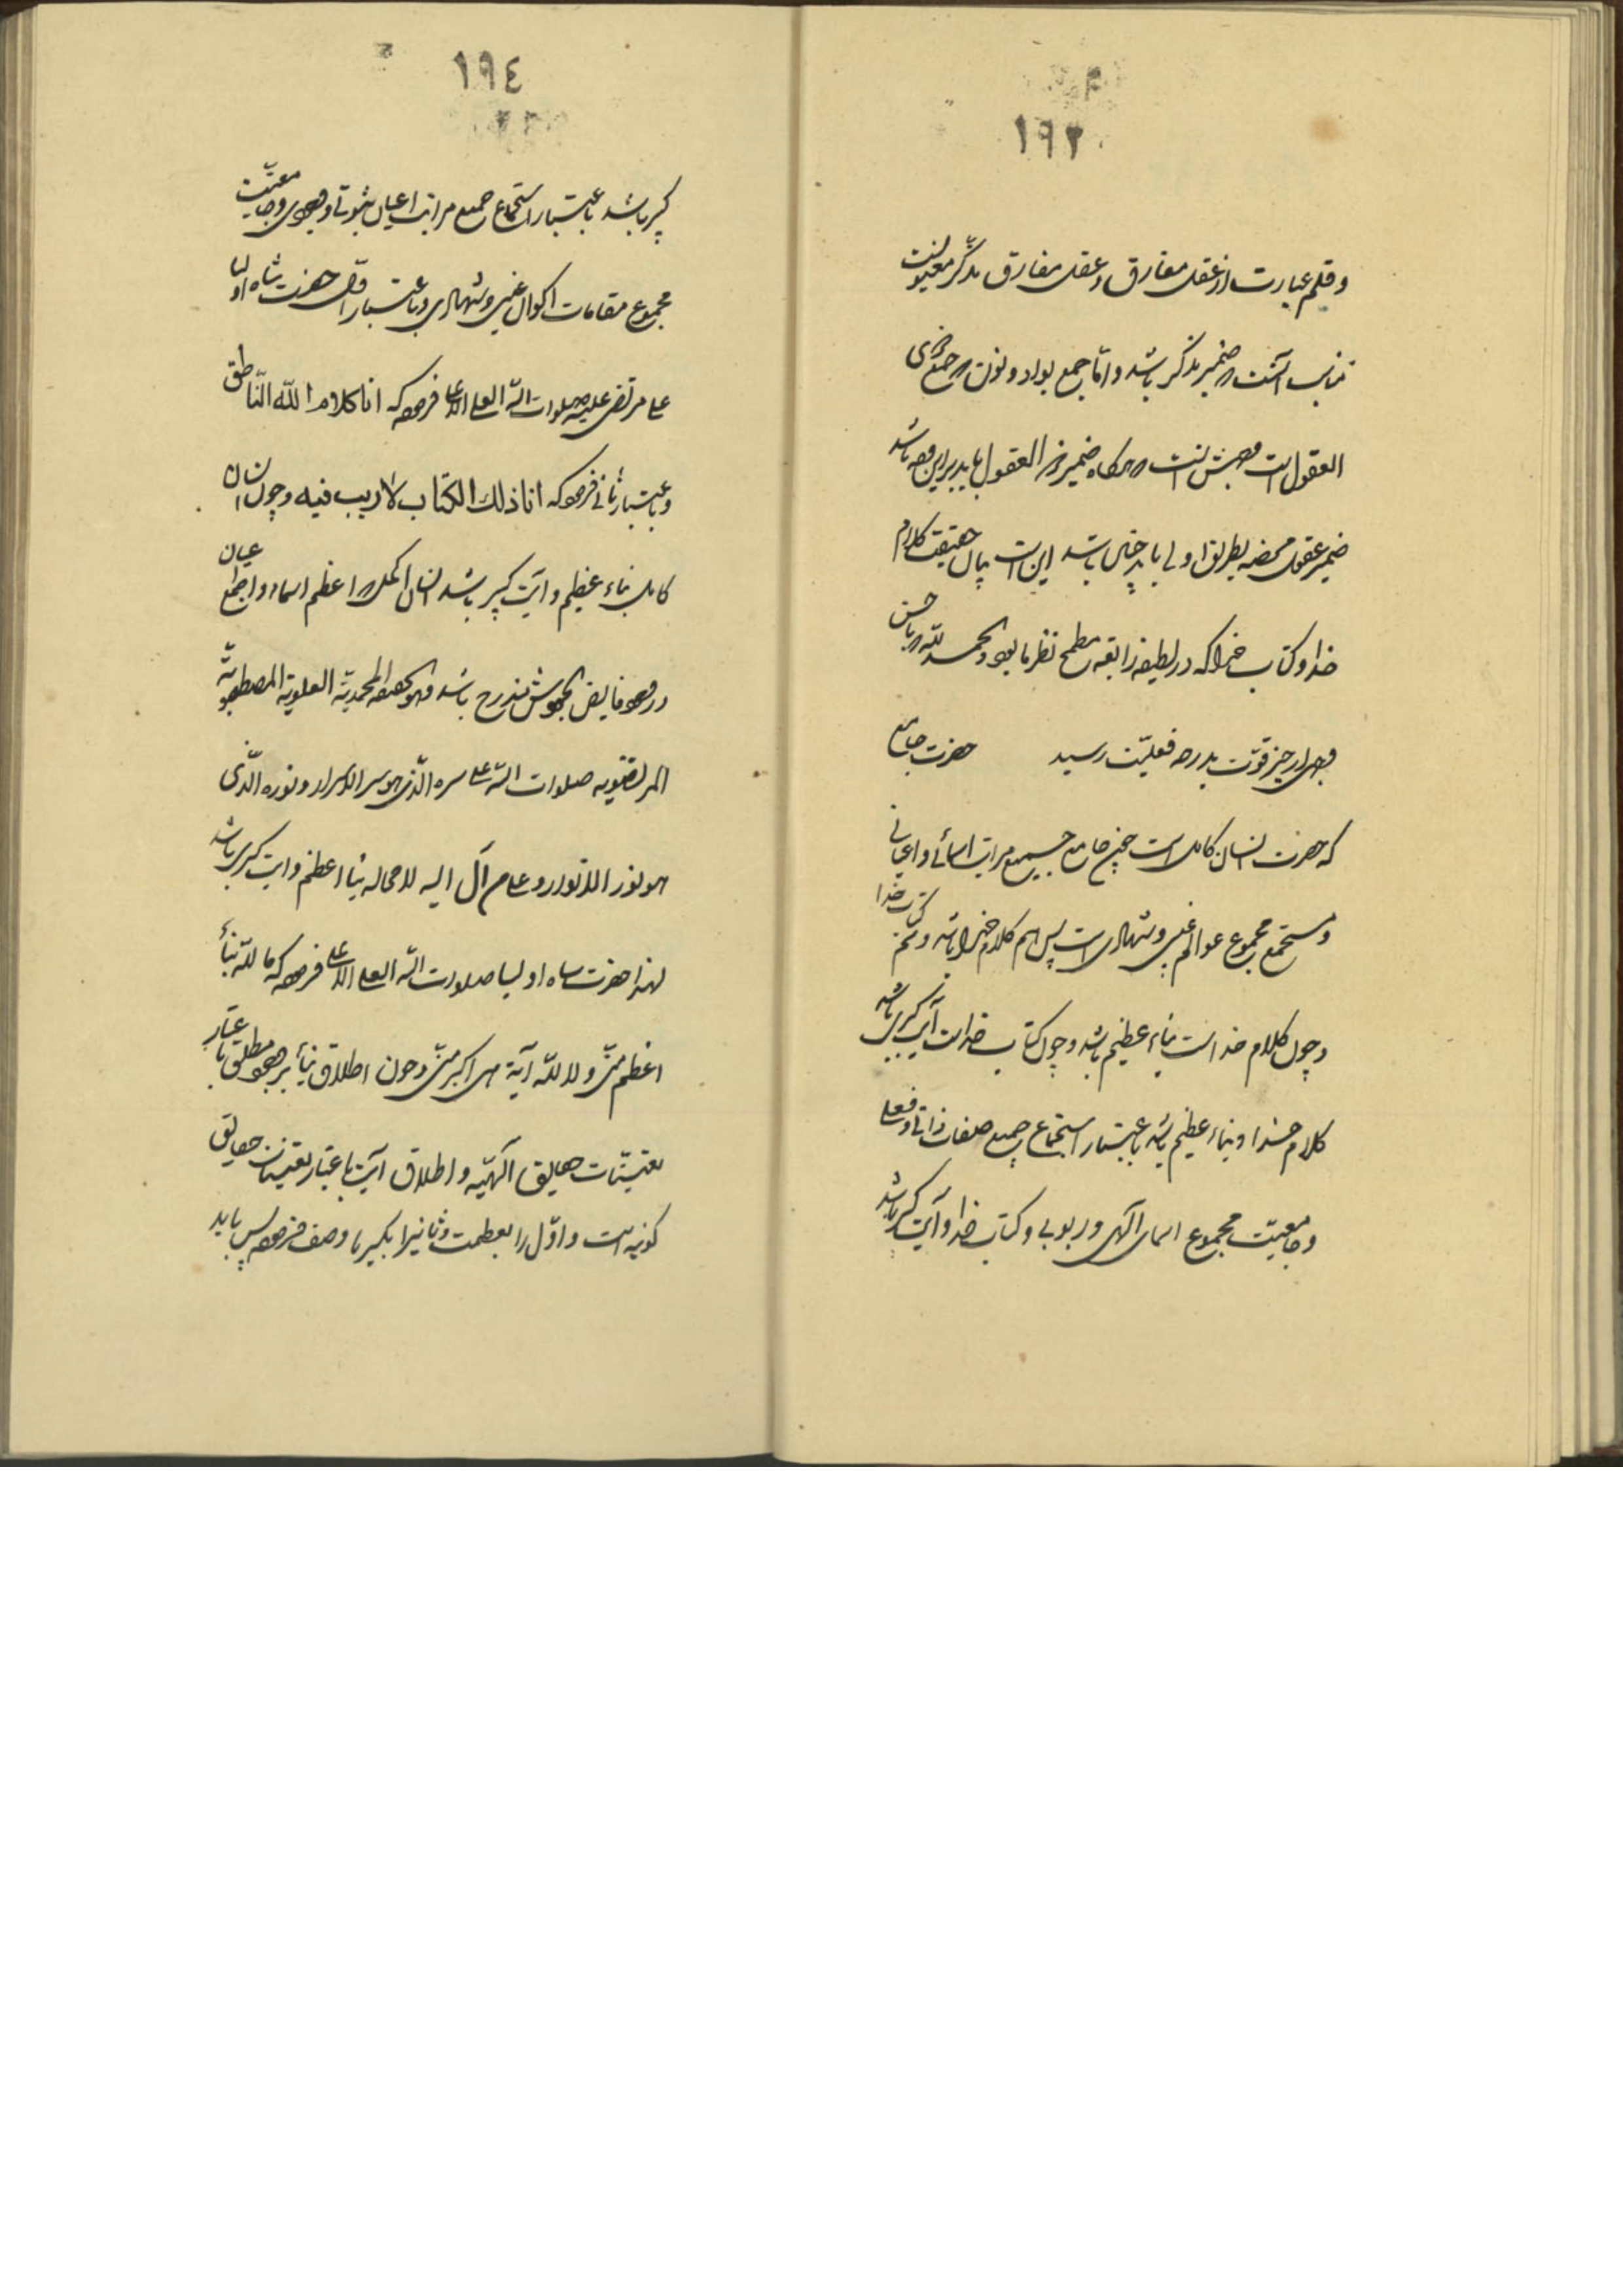 ۱۹۳
و قلم عبارت از عقل مفارق و عقل مفارق مذکر معنویست
مناسب آنست که ضمیر مذکر باشد و اما جمع بواو و نون که جمع ذوی
العقول است وجهش آنست که هرگاه ضمیر ذوی العقول باید برای باشد
ضمیر عقول محضه بطریق اولی باید چنین باشد این است بیان حقیقت کلام
خدا و کتاب خدا که در لطیفه رابعه مطمح نظر ما بود و الحمد لله که باحسن
وجهی از حیز قوت بدرجه فعلیت رسید حضرت جامع
که حضرت انسان کامل است چون جامع جمیع مراتب اسمائی و اعیانی
و مستجمع مجموع عوالم غیبی و شهادی است پس هم کلام خدا باشد و هم کتاب خدا
و چون کلام خداست نباء عظیم باشد و چون کتاب خداست آیت کبری باشد
کلام خدا و نباء عظیم باشد باعتبار استجماع جمیع صفات ذاتی و فعلی
و جامعیت مجموع اسمای الهی و ربوبی و کتاب خدا و آیت کبری باشد
۱۹٤
کبری باشد باعتبار استجماع جمیع مراتب اعیان ثبوتی و وجودی و جامعیت
مجموع مقامات اکوان غیبی و شهادی و باعتبار اول حضرت شاه اولیا
علی مرتضی علیه صلوات الله العلی الاعلی فرموده که انا کلام الله الناطق
و باعتبار ثانی فرموده که انا ذلک الکتاب لا ریب فیه و چون انسان
کامل نباء عظیم و آیت کبری باشد انسان اکمل که اعظم اسماء و اجمع اعیان
در وجود فایض الجودش مندرج باشد و هو الحقیقه المحمدیة العلویة المصطفویة
المرتضویه صلوات الله علی سره الذی هو سر الاسرار و نوره الذی
هو نور الانوار و علی من آل الیه لا محاله نباء اعظم و آیت کبری باشد
لهذا حضرت شاه اولیا صلوات الله العلی الاعلی فرموده که ما لله نبأ
اعظم منی و لا لله آیة هی اکبر منی و چون اطلاق نبأ بر وجود مطلق باعتبار
تعینات حقایق الهیه و اطلاق آیت باعتبار تعینات حقایق
کونیه است و اول را بعظمت و ثانیرا بکبریا وصف فرموده پس باید